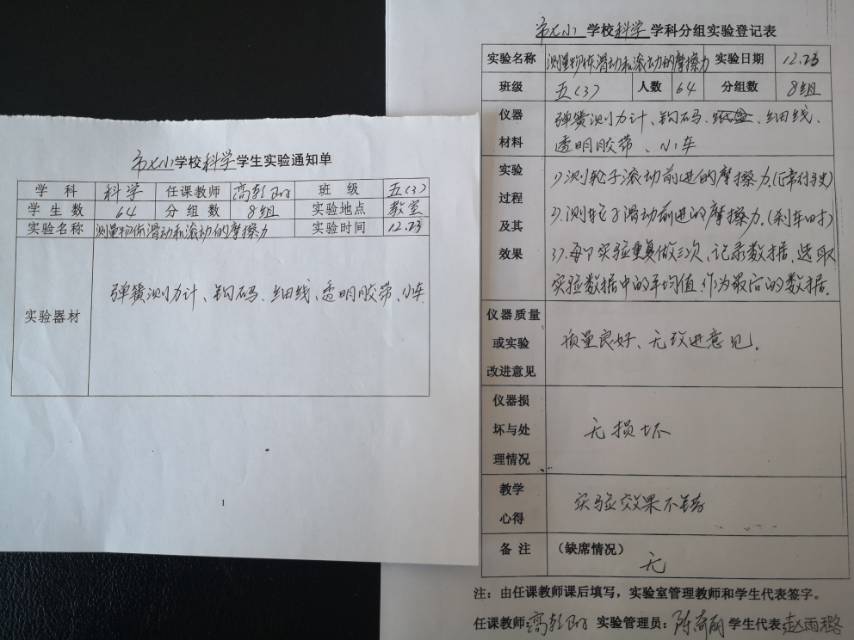 市七小学校科学学生实验通知单
学科 科学 任课教师 高 班级 五(3)
学生数 64 分组数 8组 实验地点 教室
实验名称 测量物体滑动和滚动的摩擦力 实验时间 12.23
实验器材 弹簧测力计、钩码、细线、透明胶带、小车
1
市七小学校科学学科分组实验登记表
实验名称 测量物体滑动和滚动的摩擦力 实验日期 12.23
班级 五(3) 人数 64 分组数 8组
仪器 弹簧测力计、钩码、细线、
材料 透明胶带、小车
实验 1)测轮子滚动前进的摩擦力.(正常行驶)
过程 2)测轮子滑动前进的摩擦力.(刹车时)
及其 3)每个实验重复做三次、记录数据、选取
效果 实验数据中的平均值,作为最后的数据.
仪器质量
或实验 质量良好、无改进意见。
改进意见
仪器损
坏与处 无损坏
理情况
教学 实验效果不错
心得
备注 (缺席情况)
无
注:由任课教师课后填写,实验室管理教师和学生代表签字。
任课教师: 高 实验管理员: 陈 学生代表 赵雨璐